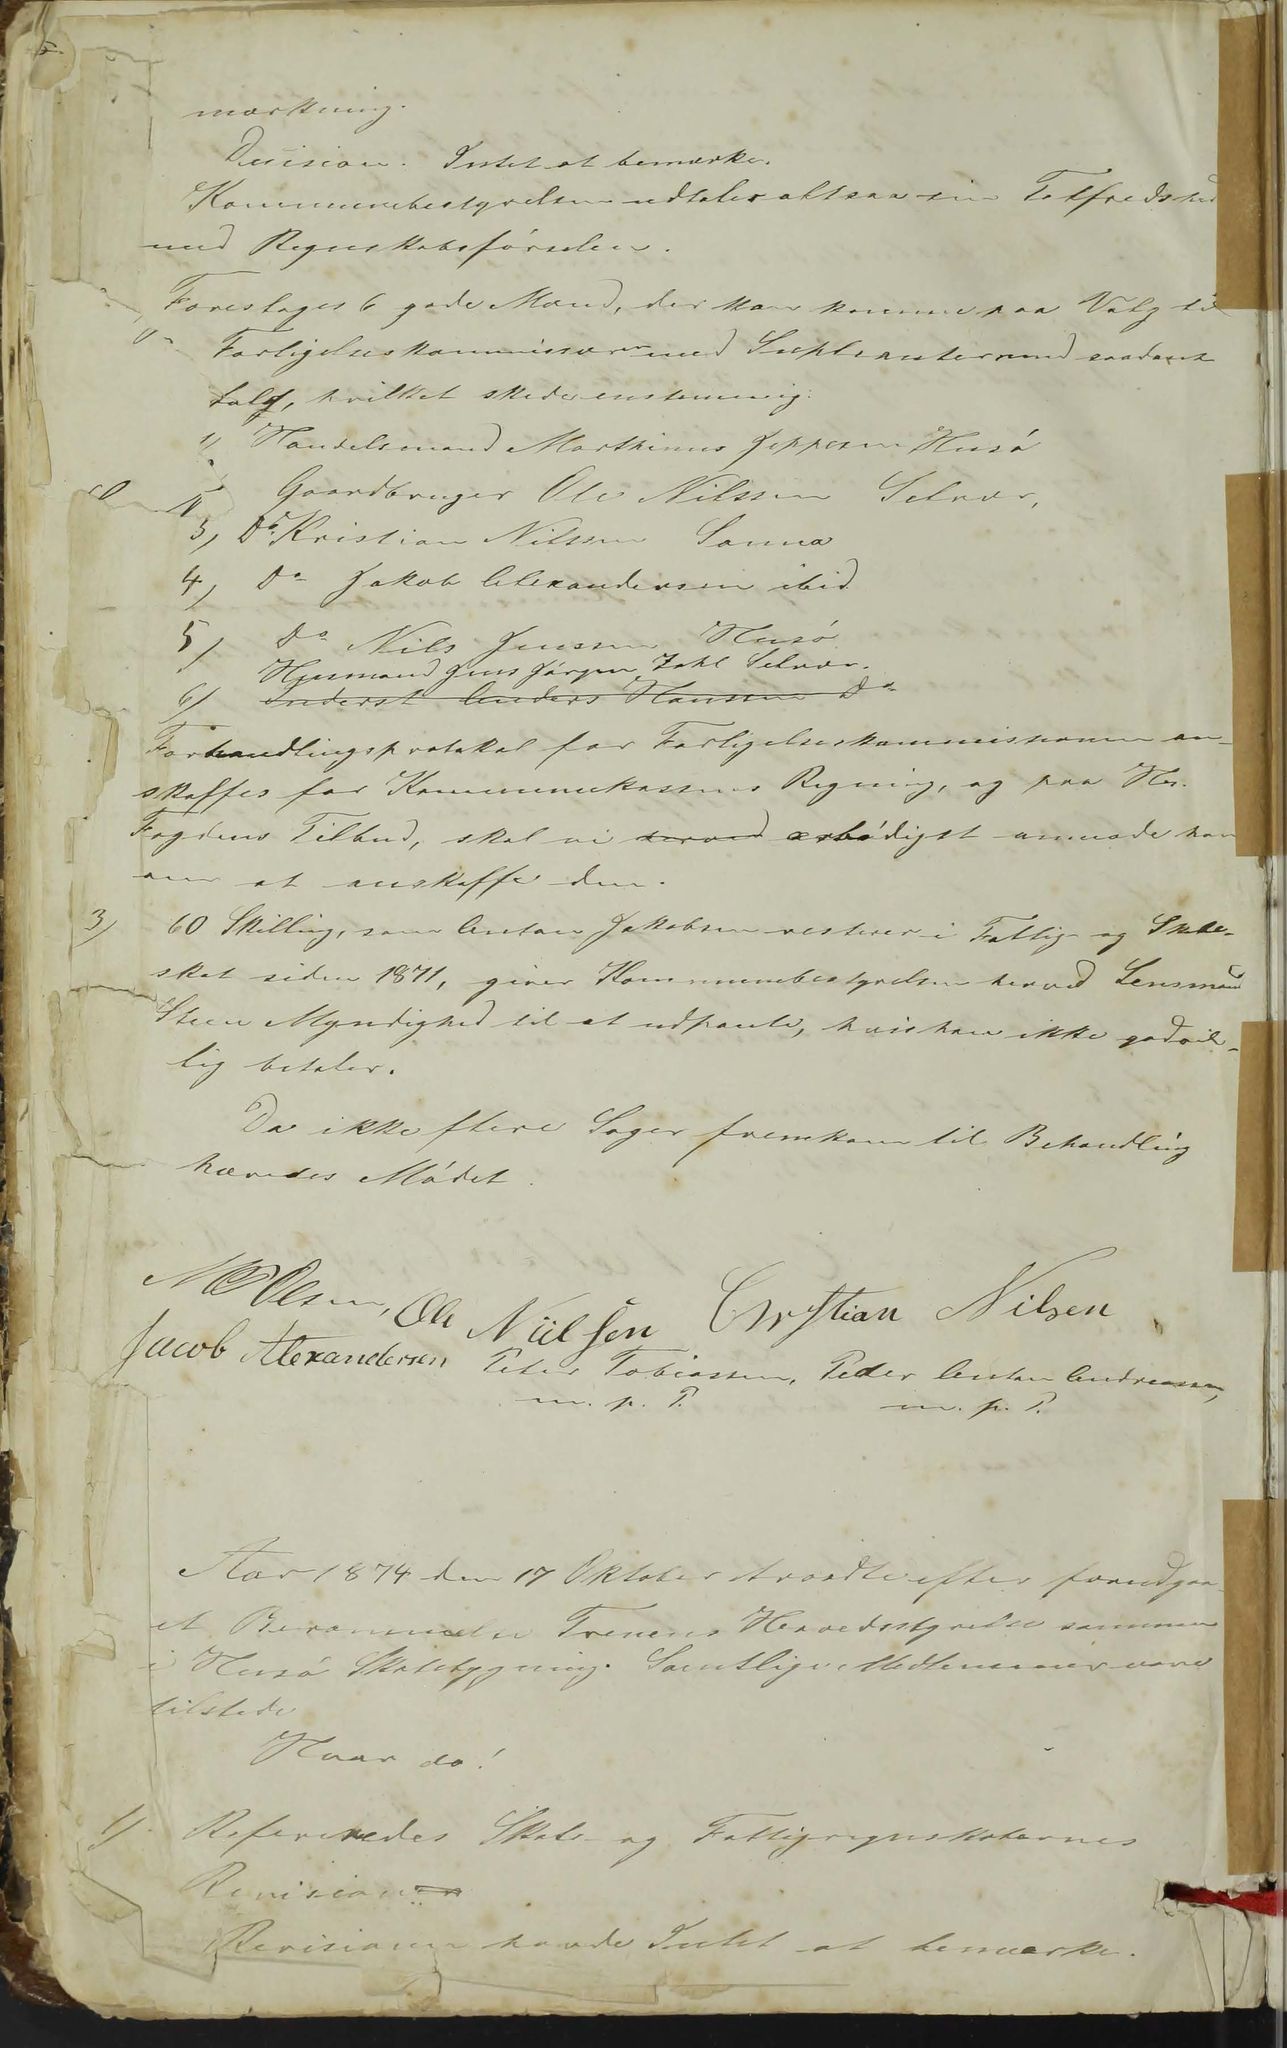 mærkning.
Decision. Intet at bemærke.
Kommunebestyrelsen udtaler altsaa sin Tilfredshed
med Regnskabsførselen.
Foreslages 6 gode Mænd, der kan komme paa Valg til
Forligelseskommissærer med Suplianter med saadant
Salg, hvilket skede enstemmig:
1) Handelsmand Marthinus Jeppesen Husø
Gaardbruger Ole Nilssen Selvær,
3) Do Kristian Nilssen Sanna
4) Do Jakob Alexandersen ibid
5) Do Nils Jenssen Husø
Husmand Jens Jørgen Zahl Selvær.
6) Inderst Anders Hanssen Do
Forhandlingsprotokol for Forligelseskommissionen an-
skaffes for Kommunekassens Regning, og paa Hr.
Fogdens Tilbud, skal vi herved ærbødigst anmode ham
om at anskaffe den.
3) 60 Skilling, som Anton Jakobsen resterer i Fattig- og Skole-
skat siden 1871, giver Kommunebestyrelsen herved Lensmand
Steen Myndighed til at udpante, hvis han ikke godvil-
lig betaler.
Da ikke flere Sager fremkom til Behandling
hævedes Mødet.
Olsen, Ole Niilsen Christian Nilsen
Jacob Alexandersen Peter Tobiassen, Peder Anton Andreassen,
m. p. P. m. p. P.
Aar 1874 den 17 Oktober traadte efter forudgaa-
et Berammelse Trænens Herredsstyrelse sammen
i Husø Skolebygning. Samtlige Medlemmer vare
tilstede
Hvor da!
1) Refereredes Skole- og Fattigregnskabernes
Revisioner
Revisionen havde Intet at bemærke.